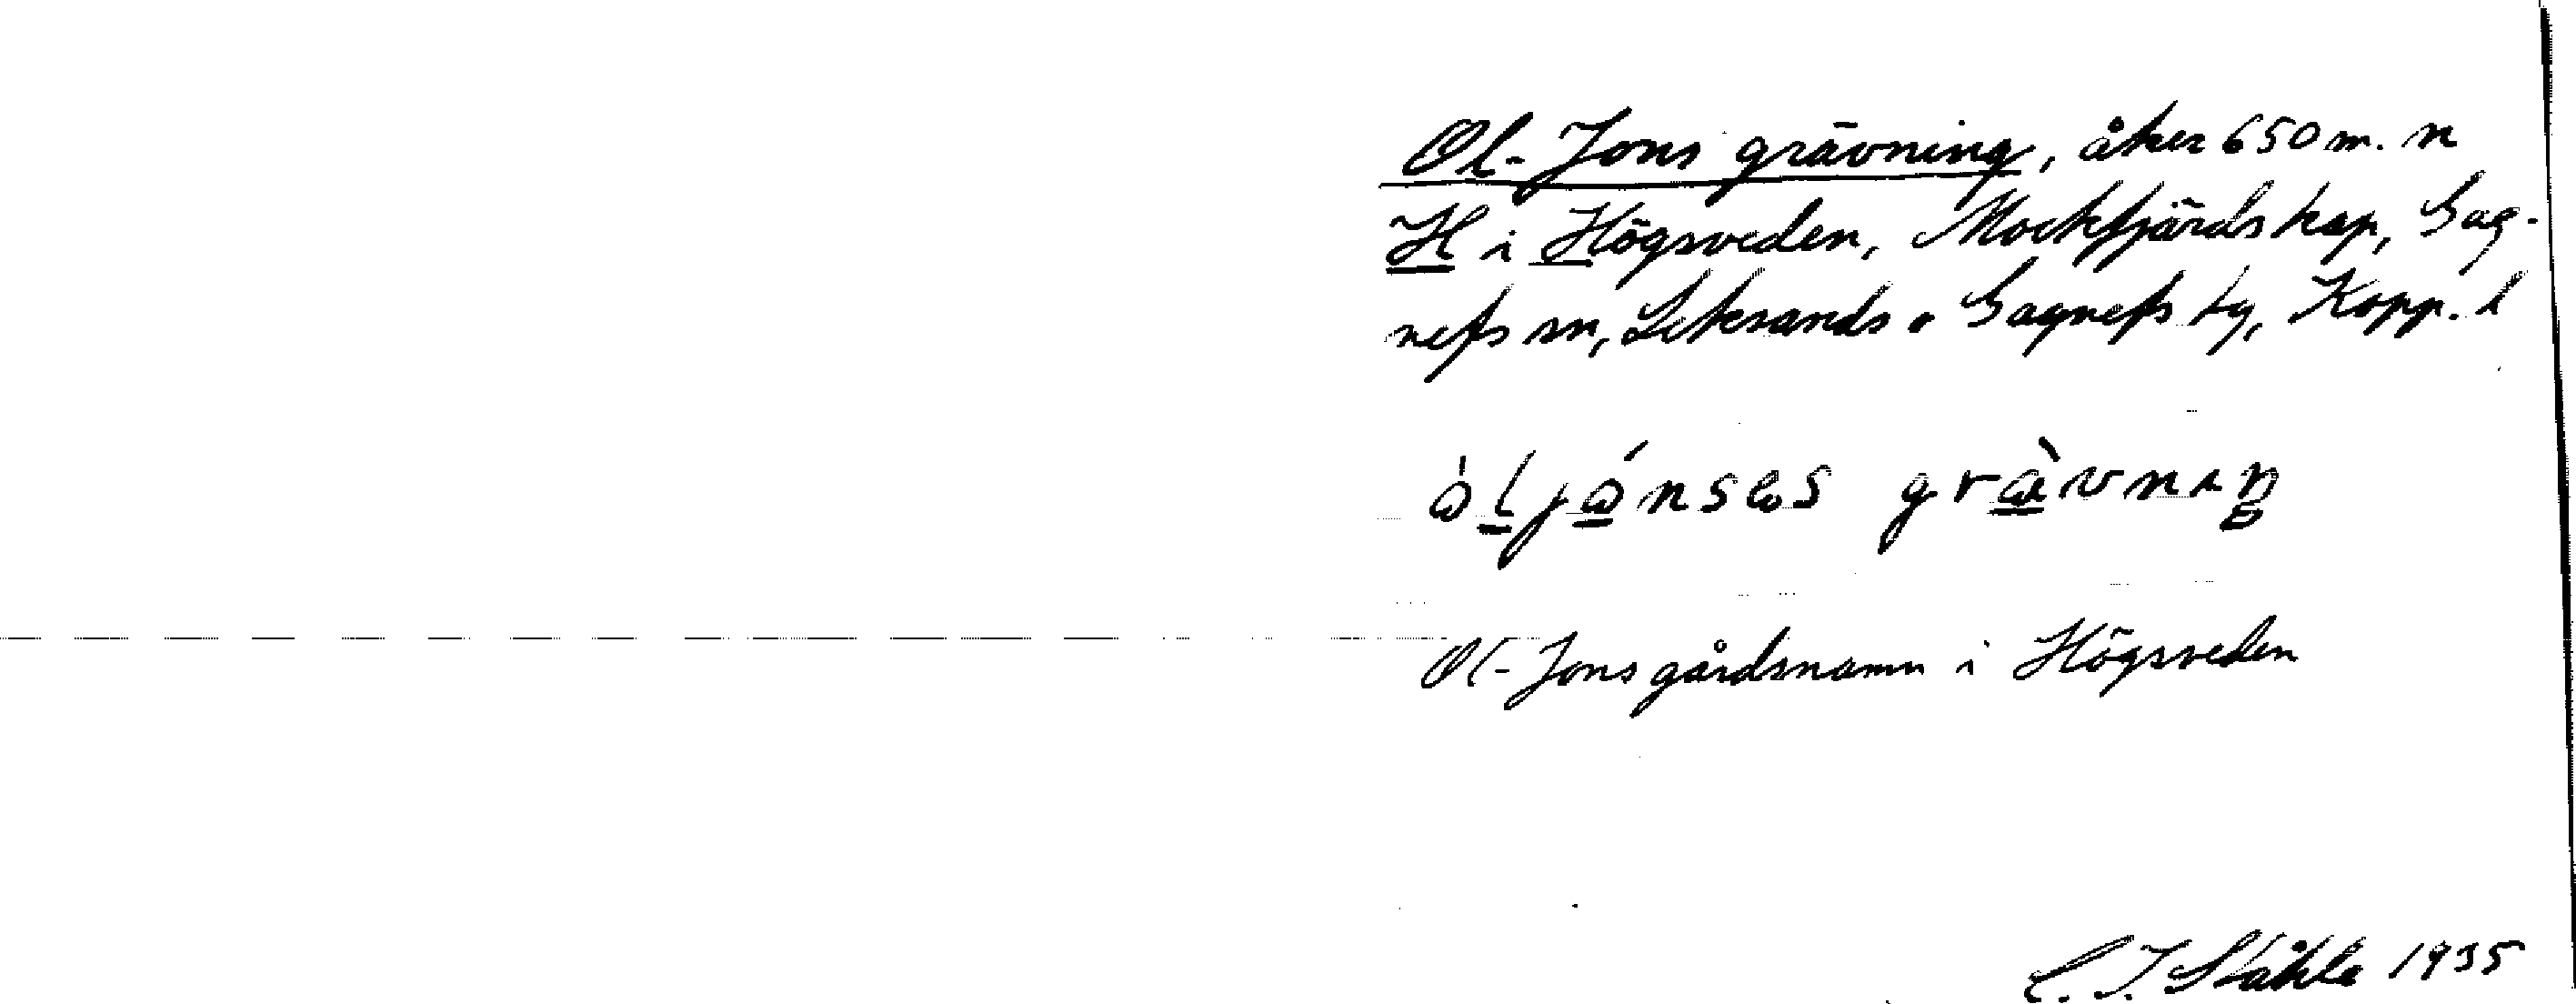 Ol-Jons grävning, åker 650 m. n
H i Högsveden, Mockfjärds kap, Gag-
nefs sn, Leksands o Gagnefs tg, Kopp. l
Ol-Jons gårdsnamn i Högsveden
C. I. Ståhle 1935